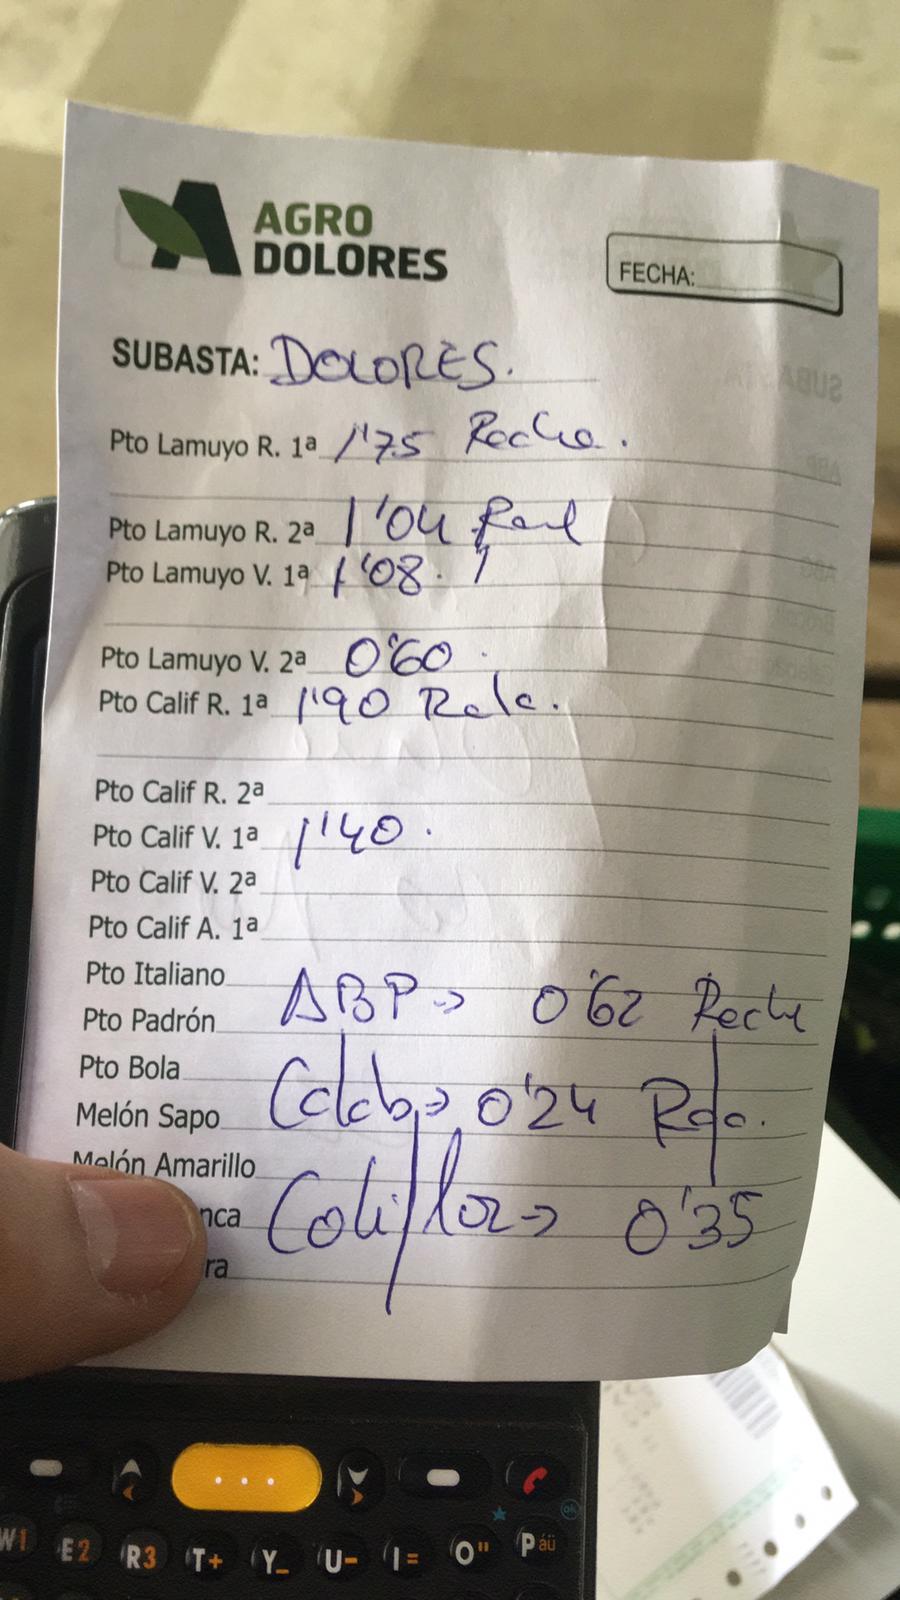 AGRO
DOLORES
FECHA:
SUBASTA: DOLORES.
Pto Lamuyo R. 1ª 1'75 Reche.
Pto Lamuyo R. 2ª 1'04
Pto Lamuyo V. 1ª 1'08.
Pto Lamuyo V. 2ª 0'60.
Pto Calif R. 1ª 1'90
Pto Calif R. 2ª
Pto Calif V. 1ª 1'40.
Pto Calif V. 2ª
Pto Calif A. 1ª
Pto Italiano
ABP-> 0'62 Reche
Pto Padrón
Pto Bola
Calab-> 0'24
Melón Sapo
Melón Amarillo
nca Coliflor-> 0'35
ra
W1 E2 R3 T+ Y_ U- I= O" P áü